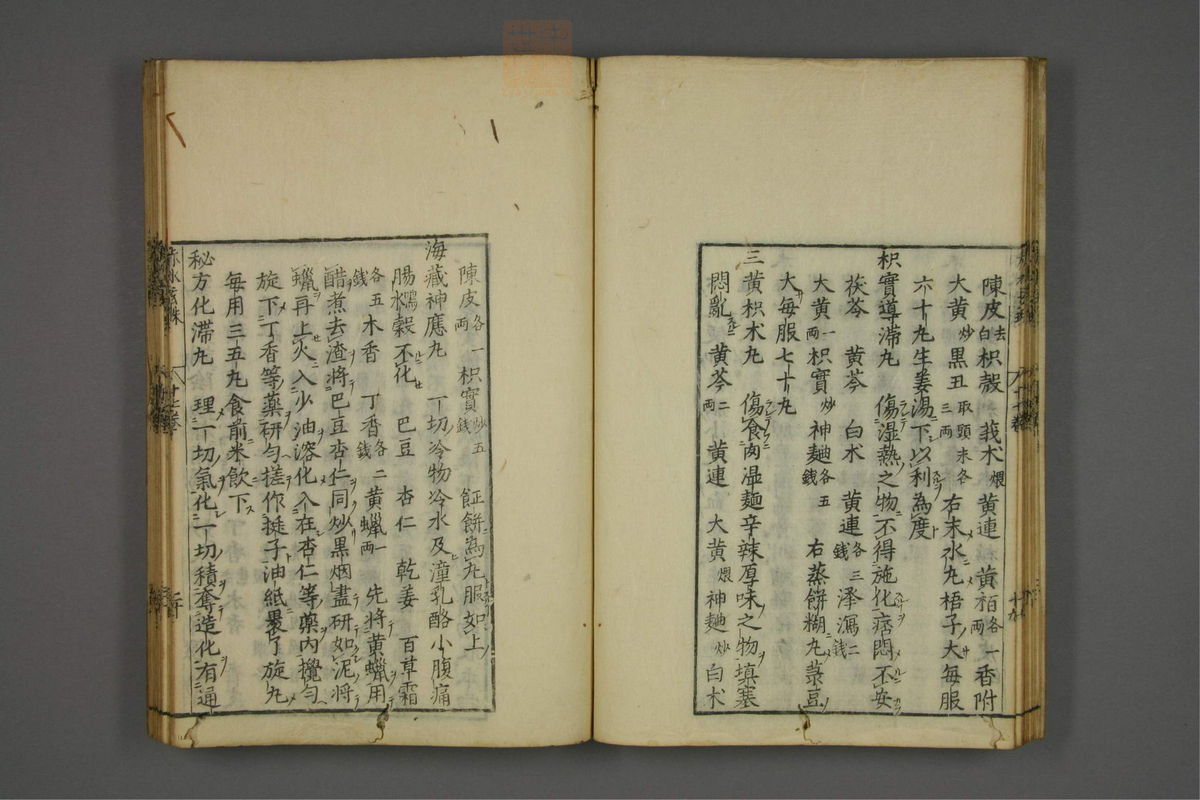 陳皮去白枳殼 莪朮煨黃連 黃栢各一兩香附
大黃炒黑丑取頭末各三兩右末水丸梧子大每服
六十丸生姜湯下以利為度
枳實導滯丸 傷濕熱之物不得施化痞悶不安
茯苓 黃芩 白朮 黃連各三錢澤瀉二錢
大黃一兩枳實炒神麯各五錢 右蒸餅糊丸菉豆
大每服七十丸
三黃枳朮丸 傷食肉濕麵辛辣厚味之物填塞
悶亂 黃芩二兩 黃連 大黃煨神麯炒白朮
陳皮各一兩枳實炒五錢 飪餅為丸服如上
海藏神應丸 一切冷物冷水及潼乳酪小腹痛
腸鳴穀不化 巴豆 杏仁 乾姜 百草霜
各五錢木香 丁香各二錢黃蠟一兩 先將黃蠟用
醋煮去渣將巴豆杏仁同炒黑烟盡研如泥將
蠟再上火入少油溶化入在杏仁等藥內攪勻
旋下丁香等藥研勻搓作挺子油紙裹了旋丸
每用三五丸食前米飲下
秘方化滯丸 理一切氣化一切積奪造化有通
赤水玄珠